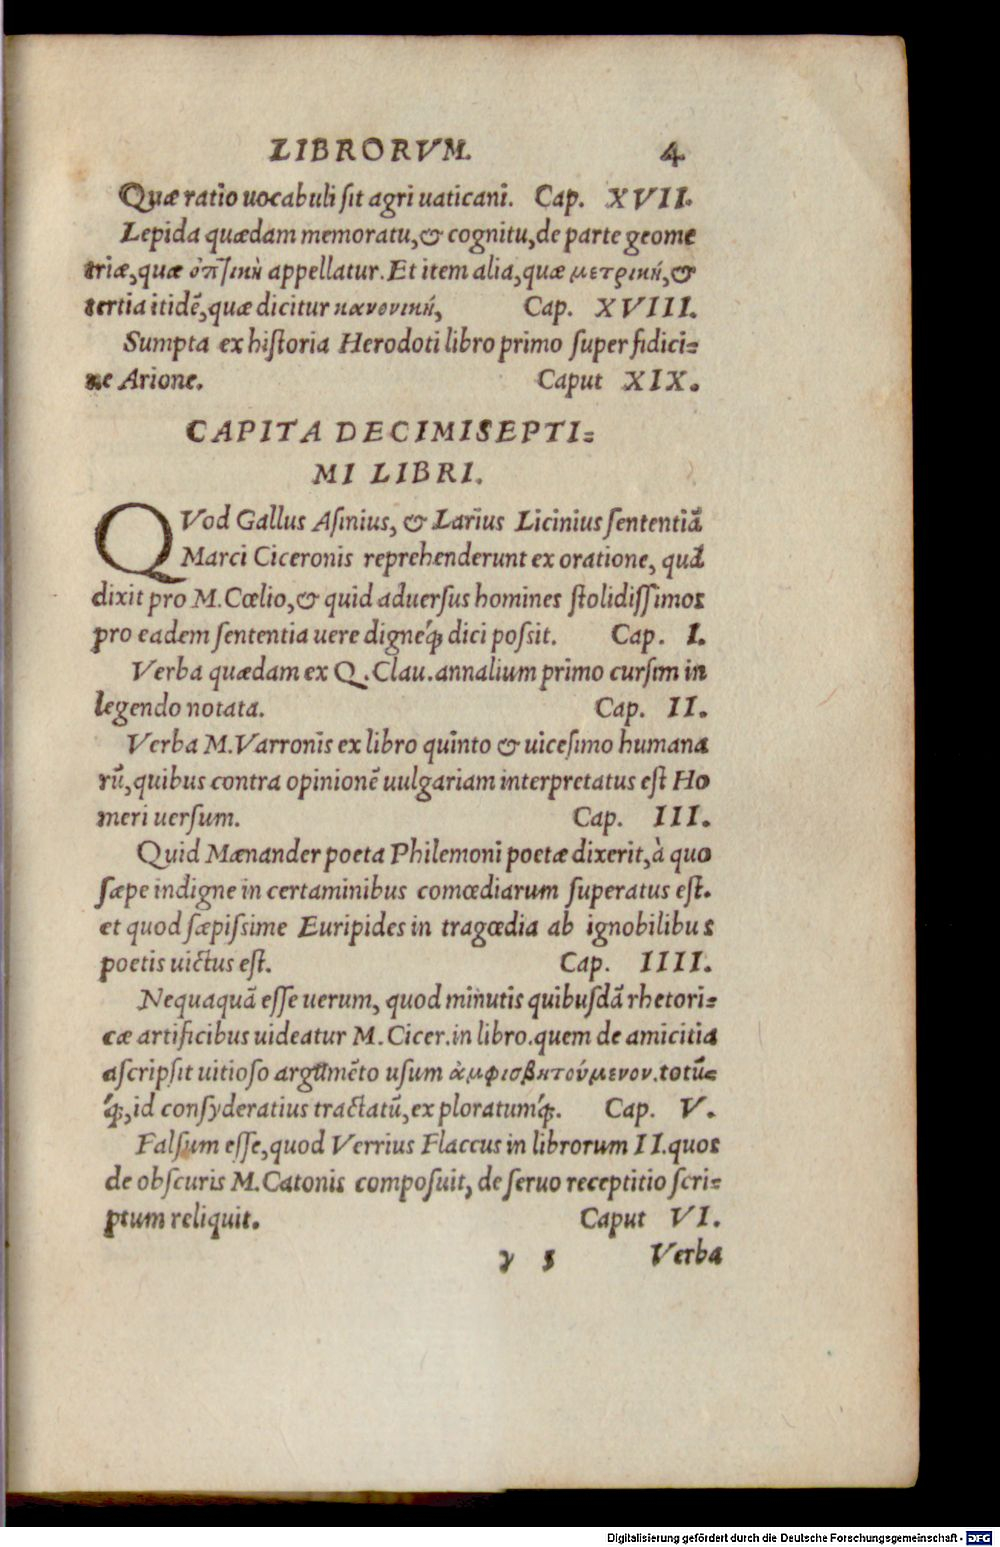 LIBRORVM. 4
Quæ ratio uocabuli sit agri uaticani. Cap. XVII.
Lepida quædam memoratu, & cognitu, de parte geome
triæ, quæ ὀπτικὴ appellatur. Et item alia, quæ μετρικὴ, &
tertia itidē, quæ dicitur κανονικὴ, Cap. XVIII.
Sumpta ex historia Herodoti libro primo super fidici=
ne Arione. Caput XIX.
CAPITA DECIMISEPTI=
MI LIBRI.
QVod Gallus Asinius, & Larius Licinius sententiā
Marci Ciceronis reprehenderunt ex oratione, quā
dixit pro M. Cœlio, & quid aduersus homines stolidissimos
pro eadem sententia uere digneq́; dici possit. Cap. I.
Verba quædam ex Q. Clau. annalium primo cursim in
legendo notata. Cap. II.
Verba M. Varronis ex libro quinto & uicesimo humana
rū, quibus contra opinionē uulgariam interpretatus est Ho
meri uersum. Cap. III.
Quid Mænander poeta Philemoni poetæ dixerit, à quo
sæpe indigne in certaminibus comœdiarum superatus est.
et quod sæpissime Euripides in tragœdia ab ignobilibus
poetis uictus est. Cap. IIII.
Nequaquā esse uerum, quod minutis quibusdā rhetori=
cæ artificibus uideatur M. Cicer. in libro. quem de amicitia
ascripsit uitioso argumēto usum ἀμφισβητούμενον. totū=
q́;, id consyderatius tractatū, exploratumq́;. Cap. V.
Falsum esse, quod Verrius Flaccus in librorum II. quos
de obscuris M. Catonis composuit, de seruo receptitio scri=
ptum reliquit. Caput VI.
y 5 Verba
Digitalisierung gefördert durch die Deutsche Forschungsgemeinschaft - DFG